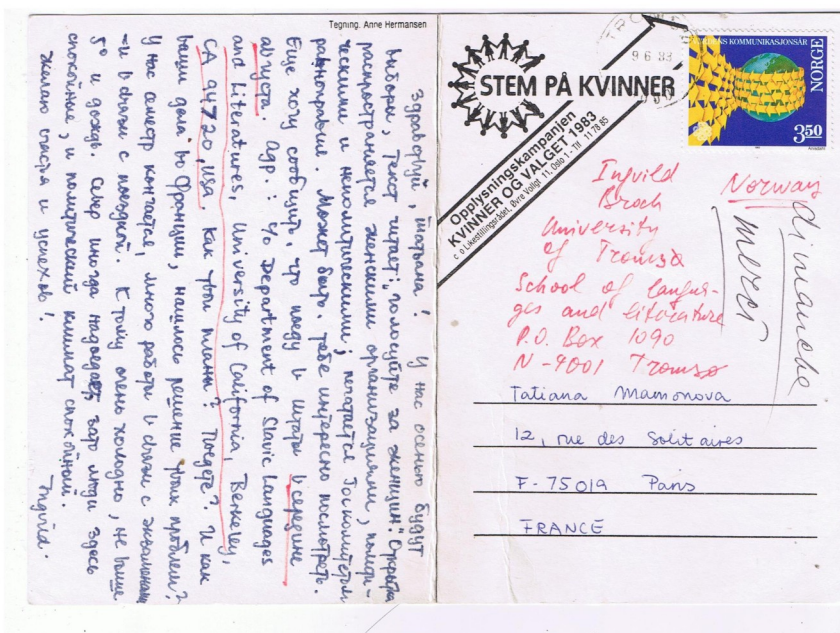 Tegning. Anne Hermansen
Здравствуй, Татьяна! У нас осенью будут
выборы, текст читает: „голосуйте за женщин." Открытка
распространяется женскими организациями, полити-
ческими и неполитическими,
равноправие. Может быть, тебе интересно посмотреть.
Еще хочу сообщить, что поеду в штаты в середине
августа. Адр.: c/o Department of Slavic Languages
and Literatures, University of California, Berkeley,
CA 94720, USA. Как твои планы? Поедде? И как
ваши дела во Франции, нашлось решение твоих проблем?
У нас семестр кончается, много работы в связи с экзаменами
-и в связи с поездкой. К тому очень холодно, не выше
5° и дождь. Север иногда надоедает, зато люди здесь
спокойные, и политический климат спокойный.
Желаю счастья и успехов!
Ingvild.
STEM PÅ KVINNER
Opplysningskampanjen
KVINNER OG VALGET 1983
c/o Likestillingsrådet, Øvre Vollgt. 11, Oslo 1 - Tlf. 11 78 85
9 6 83
KOMMUNIKASJONSÅR
NORGE
3,50
Ingvild
Broch
University
of Tromsø
School of langua-
ges and literature
P.O. Box 1090
N-9001 Tromsø
Norway
merci
dimanche
Tatiana Mamonova
12, rue des Solitaires
F-75019 Paris
FRANCE